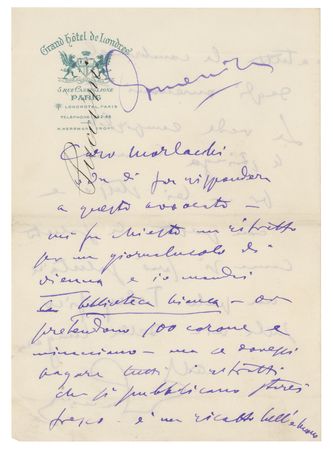 Grand Hôtel de Londres
5 RUE CASTIGLIONE
PARIS
TÉLÉPHONE
Puccini
Domenica
Caro Morlacchi
di far rispondere
a questo avvocato –
mi fu chiesto un ritratto
per un giornalucolo di
Vienna e io mandai
la biblioteca bianca – or
pretendono 100 corone e
minacciano – ma se dovessi
pagare tutti i ritratti
che si pubblicano starei
fresco – è un ricatto bell'e buono